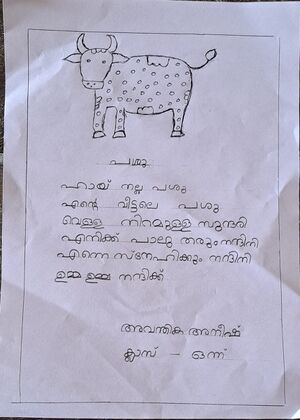 പശു
ഹായ് നല്ല പശു
എന്റെ വീട്ടിലെ പശു
വെള്ള നിറമുള്ള സുന്ദരി
എനിക്ക് പാലു തരും നന്ദിനി
എന്നെ സ്നേഹിക്കും നന്ദിനി
ഉമ്മ ഉമ്മ നന്ദിക്ക്
അവന്തിക അനീഷ്
ക്ലാസ് - ഒന്ന്